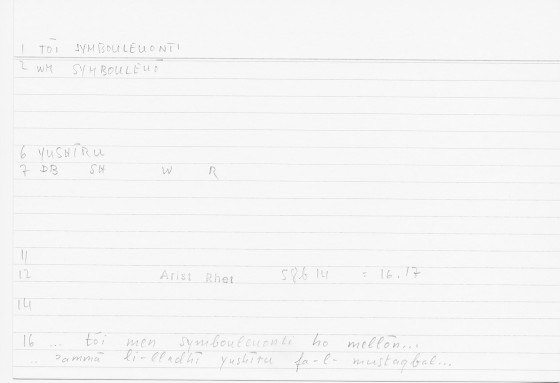 1 TŌI SYMBOULEUONTI
2 WM SYMBOULEUŌ
6 YUSHĪRU
7 DB SH W R
11
12 Arist Rhet 58b14 = 16.17
14
16 ... tōi men symbouleuonti ho mellōn...
.. ʾammā li-lladhī yushīru fa-l- mustaqbal...